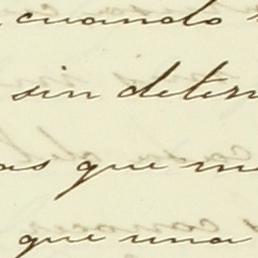 cuando
sin deter
as que m
que una